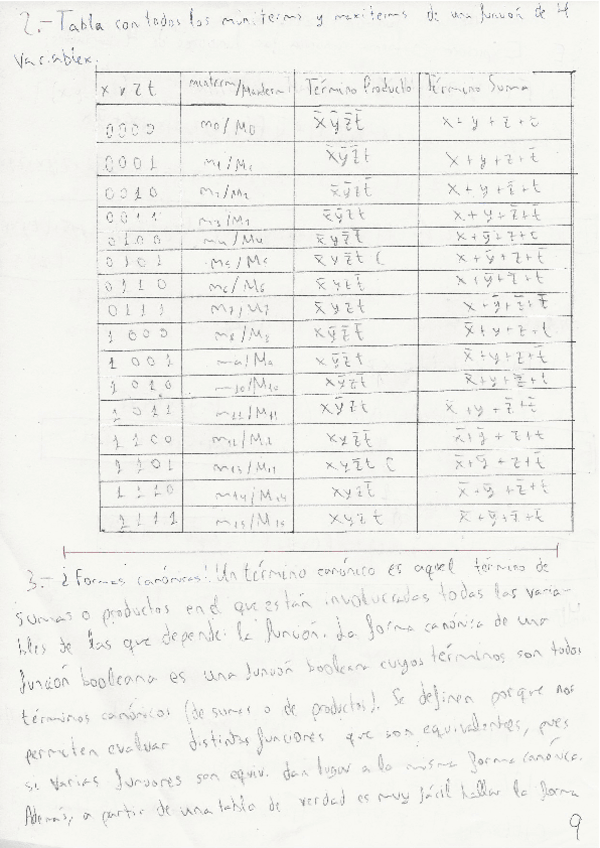 2.- Tabla con todos los miniterms y maxiterms de una función de 4
variables.
x y z t miniterm/Maxiterm Término Producto Término Suma
0000 m0/M0 x̄ȳz̄t̄ x+y+z+t
0001 m1/M1 x̄ȳz̄t x+y+z+t̄
0010 m2/M2 x̄ȳzt̄ x+y+z̄+t
0011 m3/M3 x̄ȳzt x+y+z̄+t̄
0100 m4/M4 x̄yz̄t̄ x+ȳ+z+t
0101 m5/M5 x̄yz̄t x+ȳ+z+t̄
0110 m6/M6 x̄yzt̄ x+ȳ+z̄+t
0111 m7/M7 x̄yzt x+ȳ+z̄+t̄
1000 m8/M8 xȳz̄t̄ x̄+y+z+t
1001 m9/M9 xȳz̄t x̄+y+z+t̄
1010 m10/M10 xȳzt̄ x̄+y+z̄+t
1011 m11/M11 xȳzt x̄+y+z̄+t̄
1100 m12/M12 xyz̄t̄ x̄+ȳ+z+t
1101 m13/M13 xyz̄t x̄+ȳ+z+t̄
1110 m14/M14 xyzt̄ x̄+ȳ+z̄+t
1111 m15/M15 xyzt x̄+ȳ+z̄+t̄
3.- ¿Formas canónicas? Un término canónico es aquel término de
sumas o productos en el que están involucradas todas las varia-
bles de las que depende la función. La forma canónica de una
función booleana es una función booleana cuyos términos son todos
términos canónicos (de sumas o de productos). Se definen porque nos
permiten evaluar distintas funciones que son equivalentes, pues
si varias funciones son equiv. dan lugar a la misma forma canónica.
Además, a partir de una tabla de verdad es muy fácil hallar la forma
9